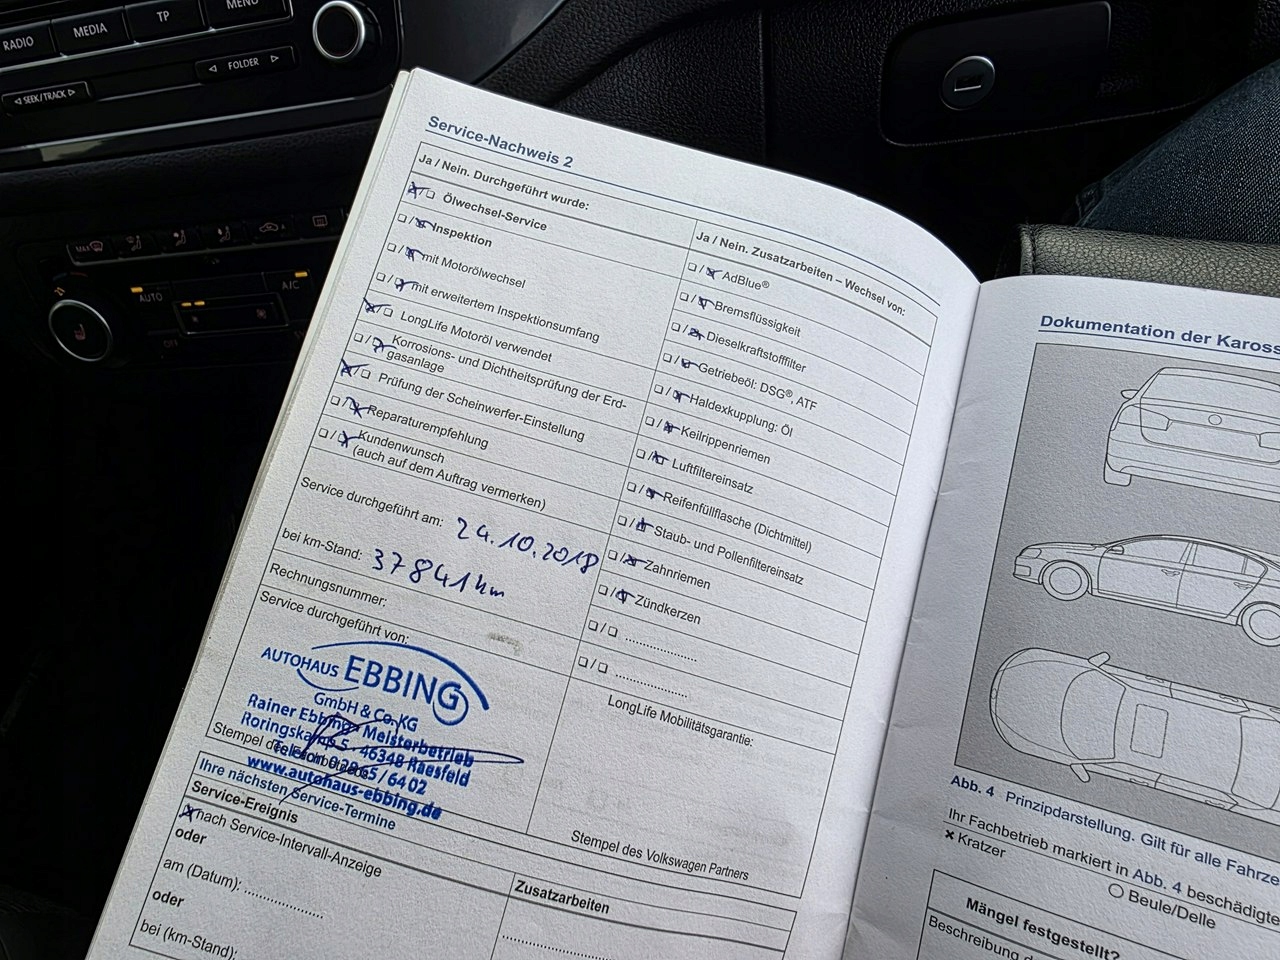 RADIO
MEDIA
TP
MENU
◁ SEEK/TRACK ▷
◁ FOLDER ▷
MAX
AUTO
A/C
OFF
Service-Nachweis 2
Ja / Nein. Durchgeführt wurde:
☒/☐ Ölwechsel-Service
☐/☒ Inspektion
☐/☒ mit Motorölwechsel
☐/☒ mit erweitertem Inspektionsumfang
☒/☐ LongLife Motoröl verwendet
☐/☒ Korrosions- und Dichtheitsprüfung der Erd-
gasanlage
☒/☐ Prüfung der Scheinwerfer-Einstellung
☐/☒ Reparaturempfehlung
☐/☒ Kundenwunsch
(auch auf dem Auftrag vermerken)
Service durchgeführt am: 24.10.2018
bei km-Stand: 37841 km
Rechnungsnummer:
Service durchgeführt von:
AUTOHAUS EBBING
GmbH & Co. KG
Rainer Ebbing - Meisterbetrieb
Roringskamp 5 · 46348 Raesfeld
Telefon 0 28 65 / 64 02
www.autohaus-ebbing.de
Ja / Nein. Zusatzarbeiten – Wechsel von:
☐/☒ AdBlue®
☐/☒ Bremsflüssigkeit
☐/☒ Dieselkraftstofffilter
☐/☒ Getriebeöl: DSG®, ATF
☐/☒ Haldexkupplung: Öl
☐/☒ Keilrippenriemen
☐/☒ Luftfiltereinsatz
☐/☒ Reifenfüllflasche (Dichtmittel)
☐/☒ Staub- und Pollenfiltereinsatz
☐/☒ Zahnriemen
☐/☒ Zündkerzen
☐/☐ ..................
☐/☐ ..................
LongLife Mobilitätsgarantie:
Stempel des Volkswagen Partners
Ihre nächsten Service-Termine
Service-Ereignis
☒ nach Service-Intervall-Anzeige
oder
am (Datum): ....................
oder
bei (km-Stand):
Zusatzarbeiten
....................
Dokumentation der Kaross
Abb. 4 Prinzipdarstellung. Gilt für alle Fahrze
Ihr Fachbetrieb markiert in Abb. 4 beschädigte
✖ Kratzer
○ Beule/Delle
Mängel festgestellt?
Beschreibung d